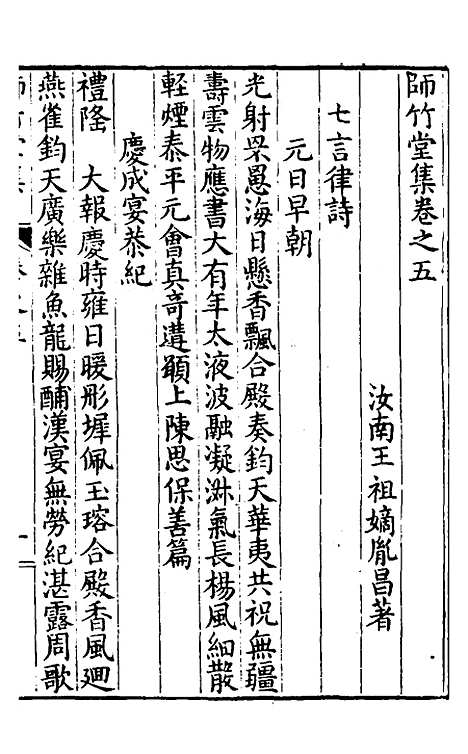 師竹堂集卷之五
汝南王祖嫡胤昌著
七言律詩
元日早朝
光射罘罳海日懸香飄合殿奏鈞天華夷共祝無疆
壽雲物應書大有年太液波融凝淋氣長楊風細散
輕煙泰平元會真奇遘願上陳思保善篇
慶成宴恭紀
禮隆　大報慶時雍日暖彤墀佩玉瑢合殿香風迴
燕雀鈞天廣樂雜魚龍賜酺漢宴無勞紀湛露周歌